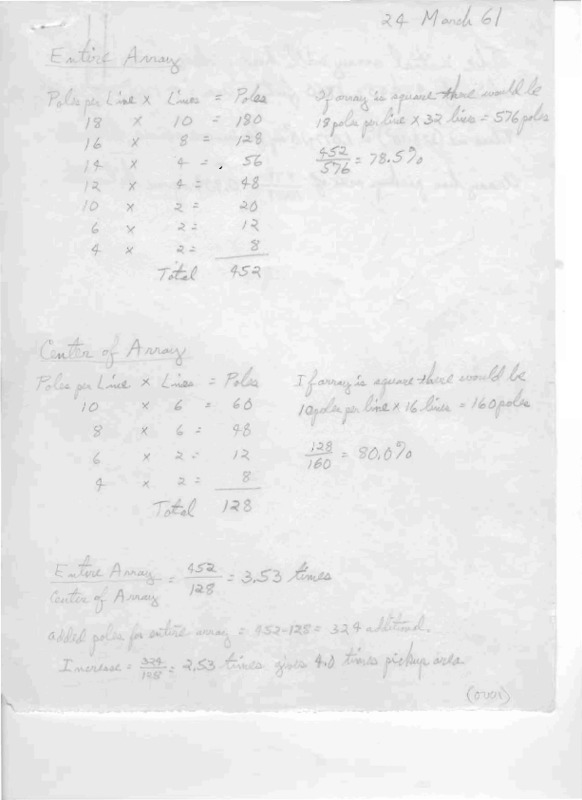 24 March 61
Entire Array
Poles per Line x Lines = Poles
18 x 10 = 180
16 x 8 = 128
14 x 4 = 56
12 x 4 = 48
10 x 2 = 20
6 x 2 = 12
4 x 2 = 8
Total 452
If array is square there would be
18 poles per line x 32 lines = 576 poles
452/576 = 78.5%
Center of Array
Poles per Line x Lines = Poles
10 x 6 = 60
8 x 6 = 48
6 x 2 = 12
4 x 2 = 8
Total 128
If array is square there would be
10 poles per line x 16 lines = 160 poles
128/160 = 80.0%
Entire Array / Center of Array = 452/128 = 3.53 times
added poles for entire array = 452-128 = 324 additional.
Increase = 324/128 = 2.53 times gives 4.0 times pickup area
(over)